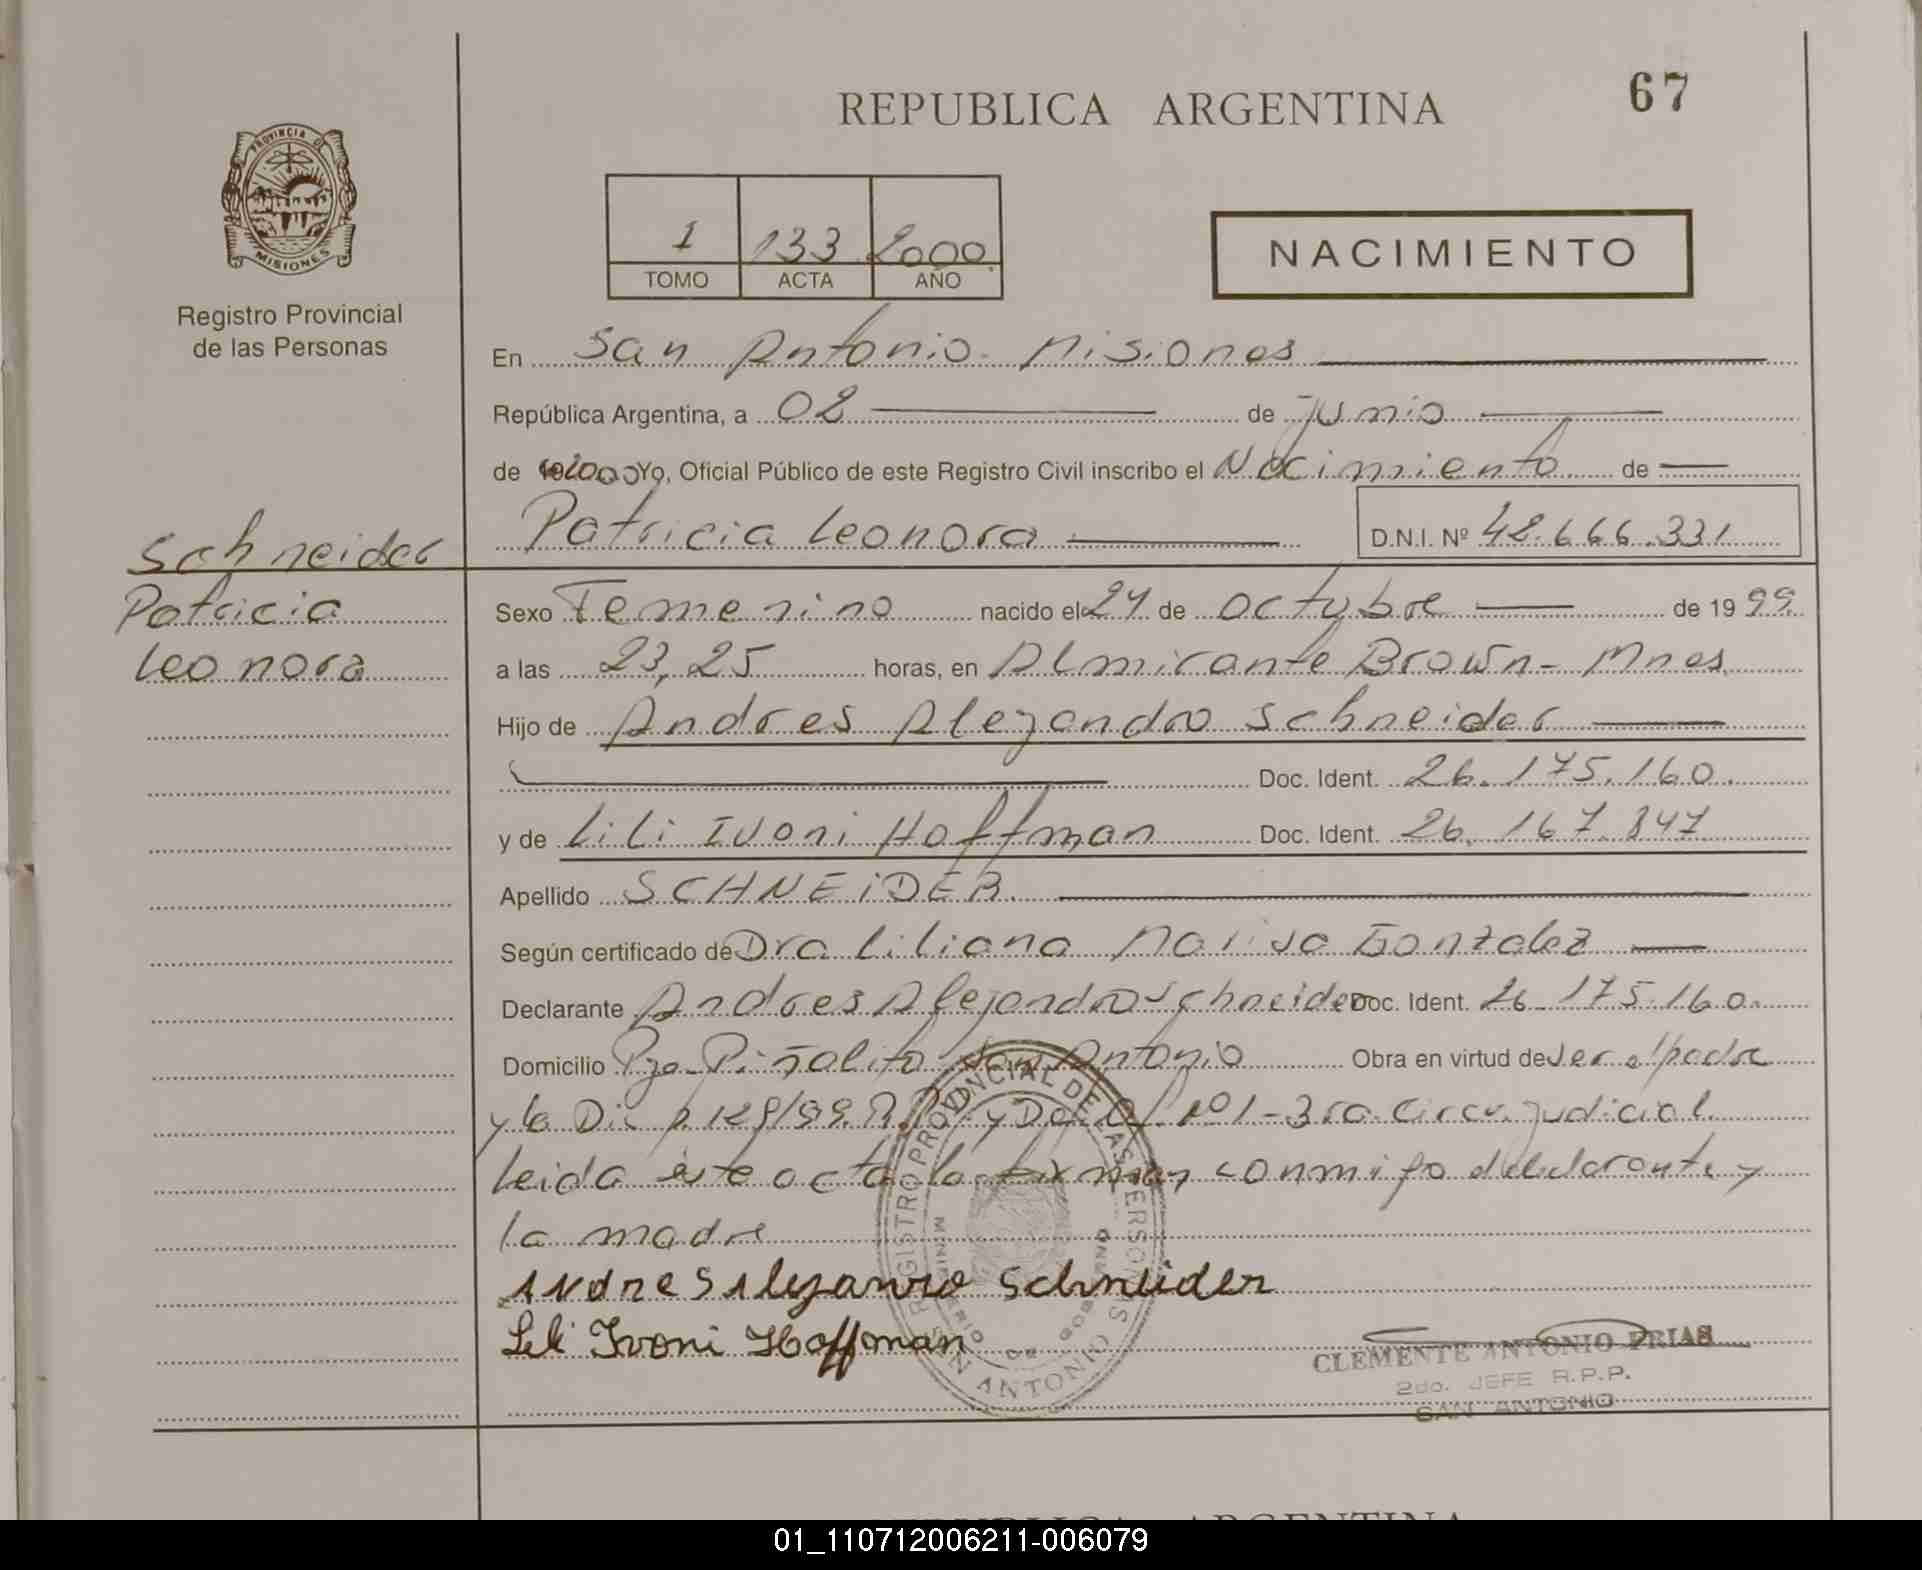 67
REPUBLICA ARGENTINA
PROVINCIA DE
MISIONES
Registro Provincial
de las Personas
1 133 2000
TOMO ACTA AÑO
NACIMIENTO
En San Antonio Misiones
República Argentina, a 02 de junio
de 2000 Yo, Oficial Público de este Registro Civil inscribo el Nacimiento de
Patricia Leonora D.N.I. Nº 42.666.331
Schneider
Patricia
Leonora
Sexo Femenino nacido el 24 de octubre de 1999
a las 23,25 horas, en Almirante Brown - Mnes
Hijo de Andres Alejandro Schneider
Doc. Ident. 26.175.160.
y de Lili Ivoni Hoffman Doc. Ident. 26.167.847
Apellido SCHNEIDER.
Según certificado de Dra Liliana Marisa Gonzalez
Declarante Andres Alejandro Schneider Doc. Ident. 26.175.160.
Domicilio Pje Piñalito San Antonio Obra en virtud de ser el padre
y la Dis 129/99. y Def. Of. Nº 1 - 3ra. Circu. judicial
Leida este acta la firman conmigo el declarante y
la madre
Andres Alejandro Schneider
Lili Ivoni Hoffman
REGISTRO PROVINCIAL DE LAS PERSONAS
MINISTERIO DE GOBIERNO
SAN ANTONIO
CLEMENTE ANTONIO FRIAS
2do. JEFE R.P.P.
SAN ANTONIO
REPUBLICA ARGENTINA
01_110712006211-006079